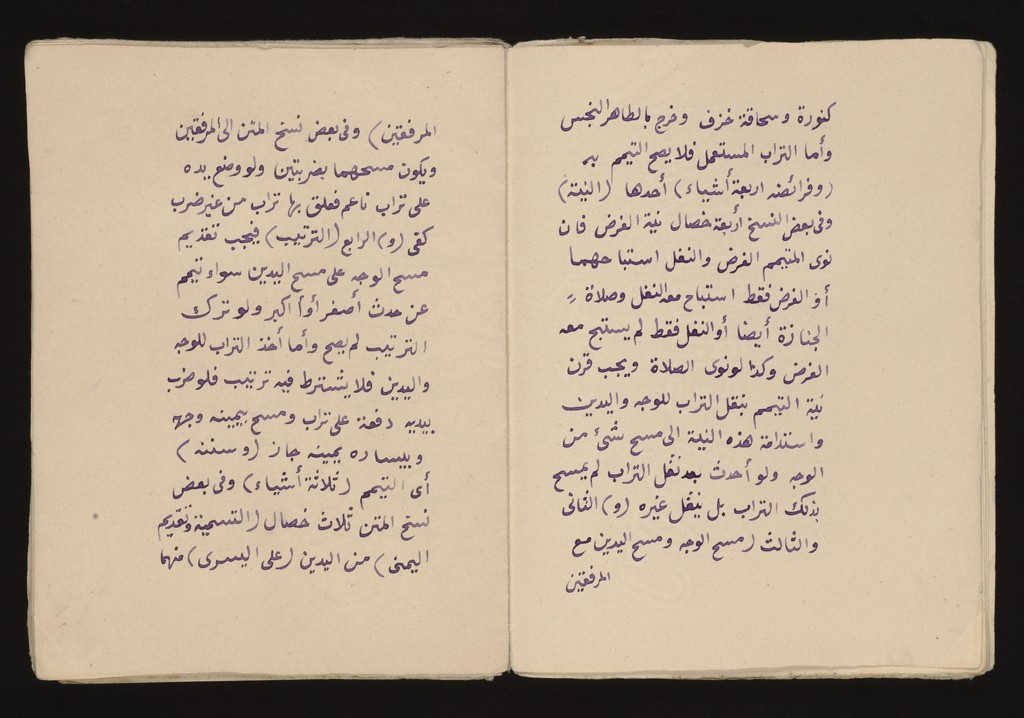 كنورة وسحاقة خزف وخرج بالطاهر النجس
وأما التراب المستعمل فلا يصح التيمم به
(وفرائضه اربعة أشياء) أحدها (النية)
وفى بعض النسخ أربعة خصال نية الفرض فان
نوى المتيمم الفرض والنفل استباحهما
أو الفرض فقط استباح معه النفل وصلاة
الجنازة أيضا أو النفل فقط لم يستبح معه
الفرض وكذا لو نوى الصلاة ويجب قرن
نية التيمم بنقل التراب للوجه واليدين
واستدامة هذه النية الى مسح شئ من
الوجه ولو أحدث بعد نقل التراب لم يمسح
بذلك التراب بل ينقل غيره (و) الثانى
والثالث (مسح الوجه ومسح اليدين مع
المرفقين
المرفقين) وفى بعض نسخ المتن الى المرفقين
ويكون مسحهما بضربتين ولو وضع يده
على تراب ناعم فعلق بها تراب من غير ضرب
كفى (و) الرابع (الترتيب) فيجب تقديم
مسح الوجه على مسح اليدين سواء تيمم
عن حدث أصغر أو أكبر ولو ترك
الترتيب لم يصح وأما أخذ التراب للوجه
واليدين فلا يشترط فيه ترتيب فلو ضرب
بيديه دفعة على تراب ومسح بيمينه وجهه
وبيساره يمينه جاز (وسننه)
أى التيمم (ثلاثة أشياء) وفى بعض
نسخ المتن ثلاث خصال (التسمية وتقديم
اليمنى) من اليدين (على اليسرى) منهما